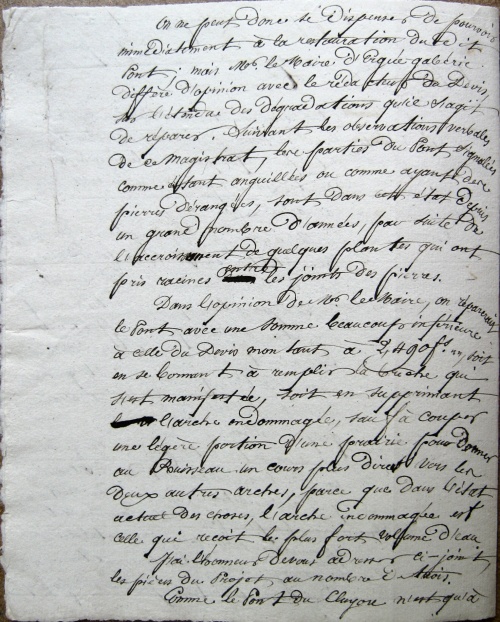 On ne peut donc se dispenser de pourvoir
immédiatement à la restauration du dit
Pont; mais Mr. le Maire d'Ergué gabéric
diffère d'opinion avec le rédacteur du Devis,
sur l'étendue des dégradations qu'il s'agit
de réparer. Suivant les observations verbales
de ce Magistrat, les parties du Pont signalées
comme étant anguillées ou comme ayant des
pierres dérangées, sont dans cet état depuis
un grand nombre d'années, par suite de
l'accroissement de quelques plantes qui ont
pris racines entre les joints des pierres.
Dans l'opinion de Mr. le Maire, on réparerait
le Pont avec une somme beaucoup inférieure
à celle du Devis montant à 2,490f. soit
en se bornant à remplir la brèche qui
s'est manifestée, soit en supprimant
l'arche endommagée, sauf à couper
une légère portion d'une prairie pour donner
au Ruisseau un cours plus direct vers les
deux autres arches, parce que dans l'état
actuel des choses, l'arche endommagée est
celle qui reçoit le plus fort volume d'eau
J'ai l'honneur de vous adresser ci-joint
les pièces du Projet au nombre de trois.
Comme le Pont du Cluyou n'est qu'à